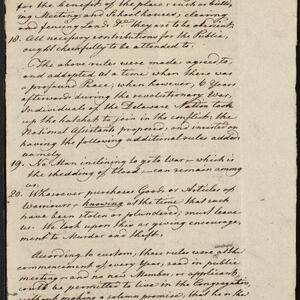 for the benefit of the place; such as build,
ing Meeting and School houses, clearing
and fencing Land &c they are to be obedient.
18. All necessary contributions for the Public,
ought chearfully to be attended to.
The above rules were made & agreed to,
and adopted at a time when there was
a profound Peace, when however, 6 Years
afterwards during the revolutionary War,
Individuals of the Delaware Nation took
up the hatchet to join in the conflict; the
National Assistants proposed, and insisted on
having the following additional rules added
namely
19. No Man inclining to go to War — which is
the shedding of blood — can remain among
us.
20. Whosoever purchases Goods or Articles of
Warriours — knowing at the time that such
have been stolen or plundered; must leave
us. We look upon this as giving encourage,
ment to Murder and theft.
According to custom, these rules were at the
commencement of every Year, read in public
meeting — and no new Member, or applicant,
could be permitted to live in the Congregation,
without making a solemn promise, that he or she